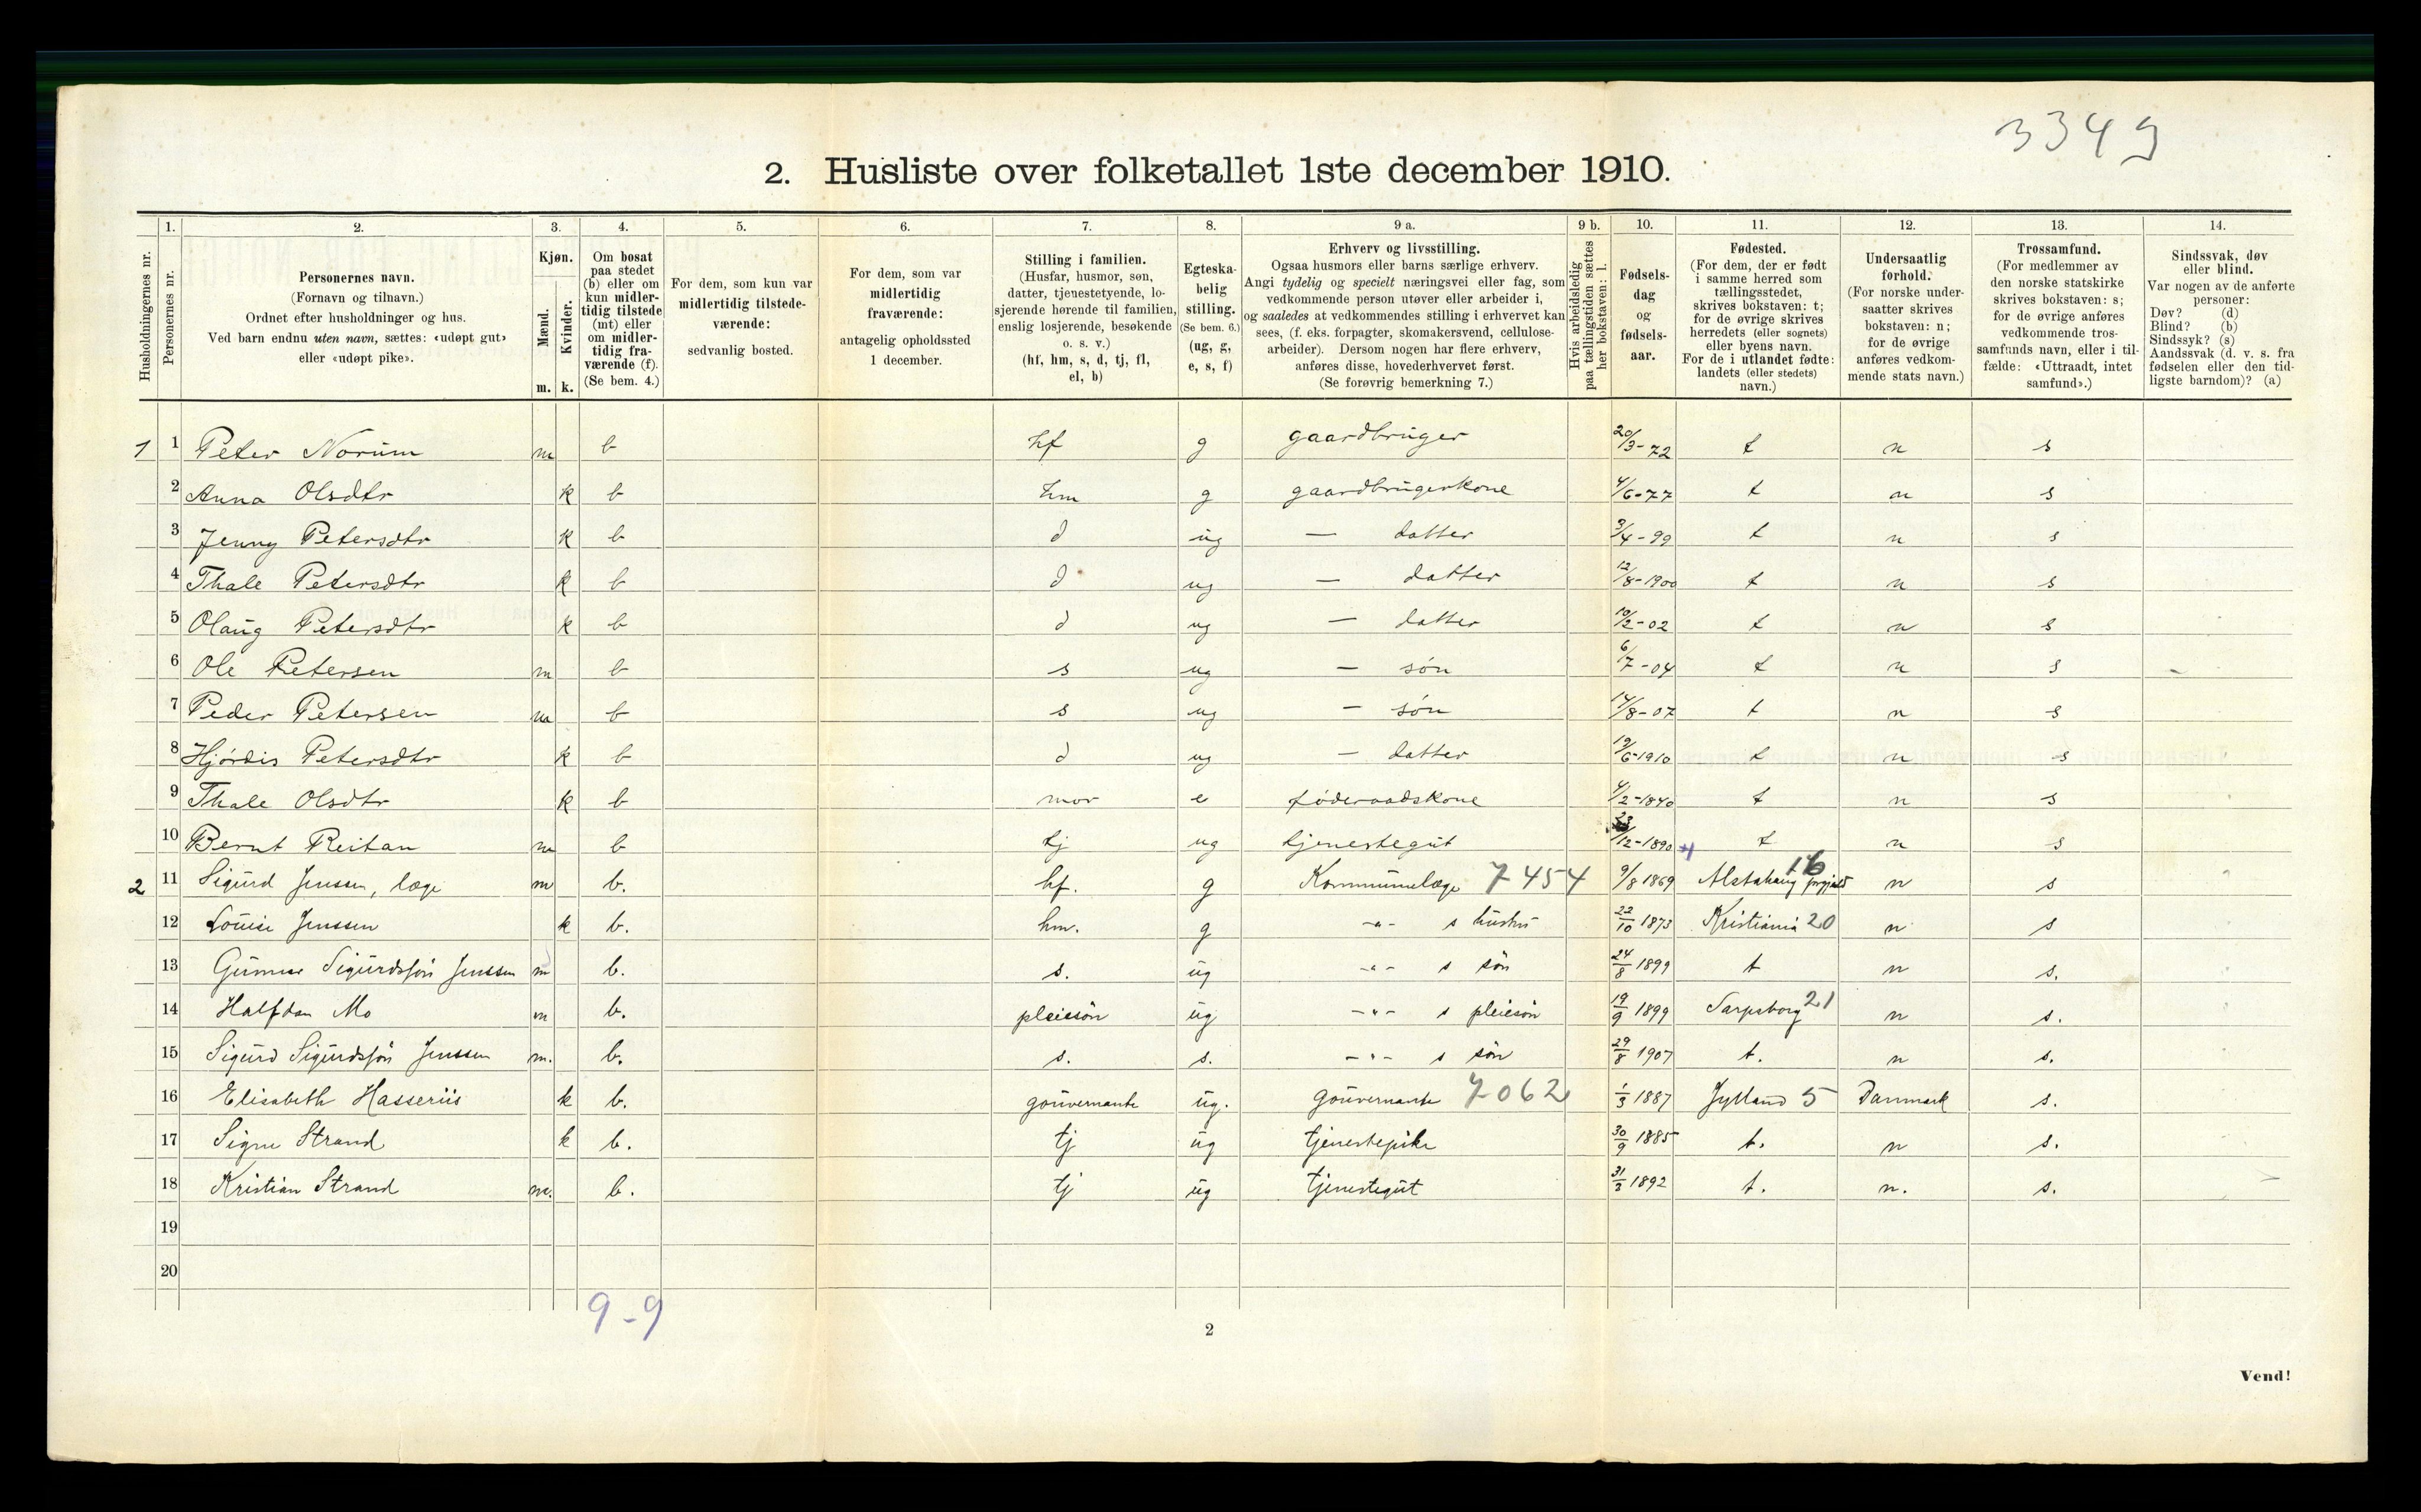 3349
2. Husliste over folketallet 1ste december 1910.
Husholdningernes nr.
1. Personernes nr.
2. Personernes navn.
(Fornavn og tilnavn.)
Ordnet efter husholdninger og hus.
Ved barn endnu uten navn, sættes: «udøpt gut»
eller «udøpt pike».
3. Kjøn.
Mænd. m.
Kvinder. k.
4. Om bosat
paa stedet
(b) eller om
kun midler-
tidig tilstede
(mt) eller
om midler-
tidig fra-
værende (f).
(Se bem. 4.)
5. For dem, som kun var
midlertidig tilstede-
værende:
sedvanlig bosted.
6. For dem, som var
midlertidig
fraværende:
antagelig opholdssted
1 december.
7. Stilling i familien.
(Husfar, husmor, søn,
datter, tjenestetyende, lo-
sjerende hørende til familien,
enslig losjerende, besøkende
o. s. v.)
(hf, hm, s, d, tj, fl,
el, b)
8. Egteska-
belig
stilling.
(Se bem. 6.)
(ug, g,
e, s, f)
9 a. Erhverv og livsstilling.
Ogsaa husmors eller barns særlige erhverv.
Angi tydelig og specielt næringsvei eller fag, som
vedkommende person utøver eller arbeider i,
og saaledes at vedkommendes stilling i erhvervet kan
sees, (f. eks. forpagter, skomakersvend, cellulose-
arbeider). Dersom nogen har flere erhverv,
anføres disse, hovederhvervet først.
(Se forøvrig bemerkning 7.)
9 b. Hvis arbeidsledig
paa tællingstiden sættes
her bokstaven: l.
10. Fødsels-
dag
og
fødsels-
aar.
11. Fødested.
(For dem, der er født
i samme herred som
tællingsstedet,
skrives bokstaven: t;
for de øvrige skrives
herredets (eller sognets)
eller byens navn.
For de i utlandet fødte:
landets (eller stedets)
navn.)
12. Undersaatlig
forhold.
(For norske under-
saatter skrives
bokstaven: n;
for de øvrige
anføres vedkom-
mende stats navn.)
13. Trossamfund.
(For medlemmer av
den norske statskirke
skrives bokstaven: s;
for de øvrige anføres
vedkommende tros-
samfunds navn, eller i til-
fælde: «Uttraadt, intet
samfund».)
14. Sindssvak, døv
eller blind.
Var nogen av de anførte
personer:
Døv? (d)
Blind? (b)
Sindssyk? (s)
Aandssvak (d. v. s. fra
fødselen eller den tid-
ligste barndom)? (a)
1 1 Peter Norum m b hf g gaardbruger 20/3-72 t n s
2 Anna Olsdtr k b hm g gaardbrugerkone 4/6-77 t n s
3 Jenny Petersdtr k b d ug — datter 3/4-99 t n s
4 Thale Petersdtr k b d ug — datter 12/8-1900 t n s
5 Olaug Petersdtr k b d ug — datter 10/2-02 t n s
6 Ole Petersen m b s ug — søn 6/7-04 t n s
7 Peder Petersen m b s ug — søn 14/8-07 t n s
8 Hjördis Petersdtr k b d ug — datter 19/6-1910 t n s
9 Thale Olsdtr k b mor e föderaadskone 4/2-1840 t n s
10 Bernt Reitan m b tj ug tjenestegut 23/12-1890 t n s
2 11 Sigurd Jenssen, læge m b. hf. g Kommunelæge 7454 9/8 1869 Alstahaug prgjeld 16 n s
12 Louise Jenssen k b. hm. g -"- s hustru 22/10 1873 Kristiania 20 n s
13 Gunnar Sigurdsfön Jenssen m b. s. ug -"- s sön 24/8 1899 t n s.
14 Halfdan Mo m b. pleiesön ug -"- s pleiesön 19/9 1899 Sarpsborg 21 n s.
15 Sigurd Sigurdsfön Jenssen m. b. s. s. -"- s sön 29/8 1907 t. n s.
16 Elisabeth Hasseriis k b. gouvernante ug. gouvernante 7062 1/3 1887 Jylland 5 Danmark s.
17 Signe Strand k b. tj ug tjenestepike 30/9 1885 t. n s.
18 Kristian Strand m. b. tj ug tjenestegut 31/3 1892 t. n. s.
19
20
9-9
2
Vend!